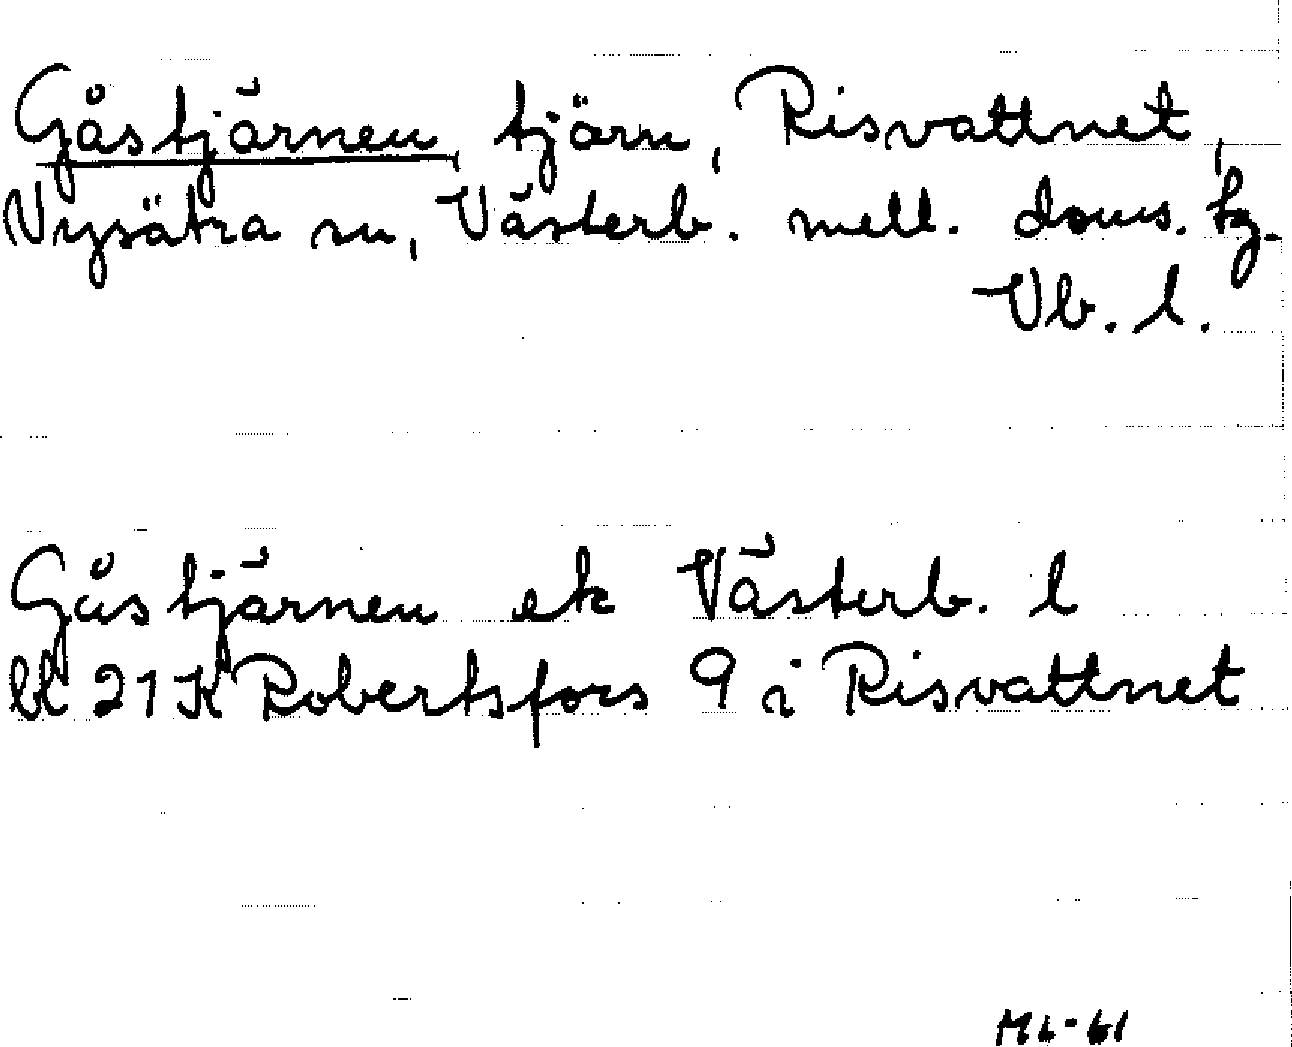 Gåstjärnen, tjärn, Risvattnet,
Nysätra sn, Västerb. mell. doms. tg.
Vb. l.
Gåstjärnen ek Västerb. l
bl 21 K Robertsfors 9 i Risvattnet
ML-61